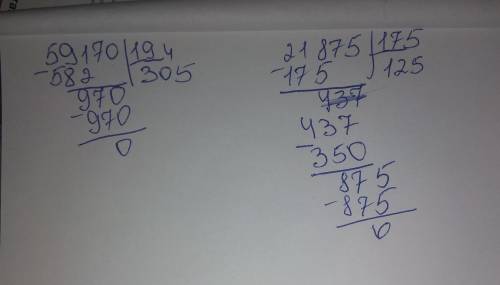 59170 | 194
-582 | 305
970
-970
0
21875 | 175
-175 | 125
437
437
-350
875
-875
0